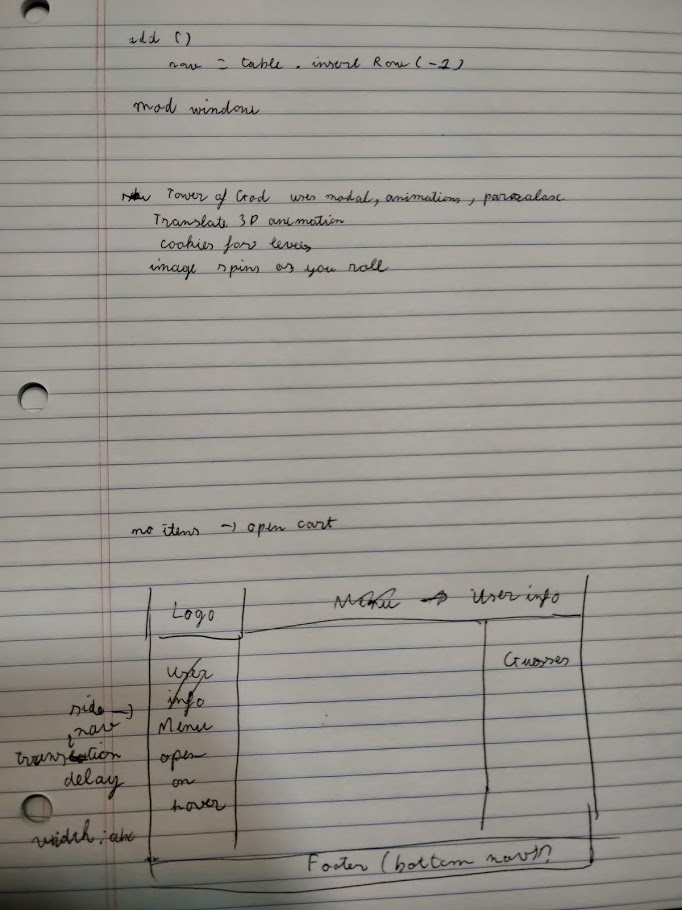 add ()
row = table . insert Row (-1)
mod window
Tower of God uses modal, animations, paraalax
Translate 3D animation
cookies for levels
image spins as you roll
no itens → open cart
Logo
Menu → User info
User
info
Guesses
side →
nav
Menu
transition
open
delay
on
hover
width :
Footer (bottom nav)